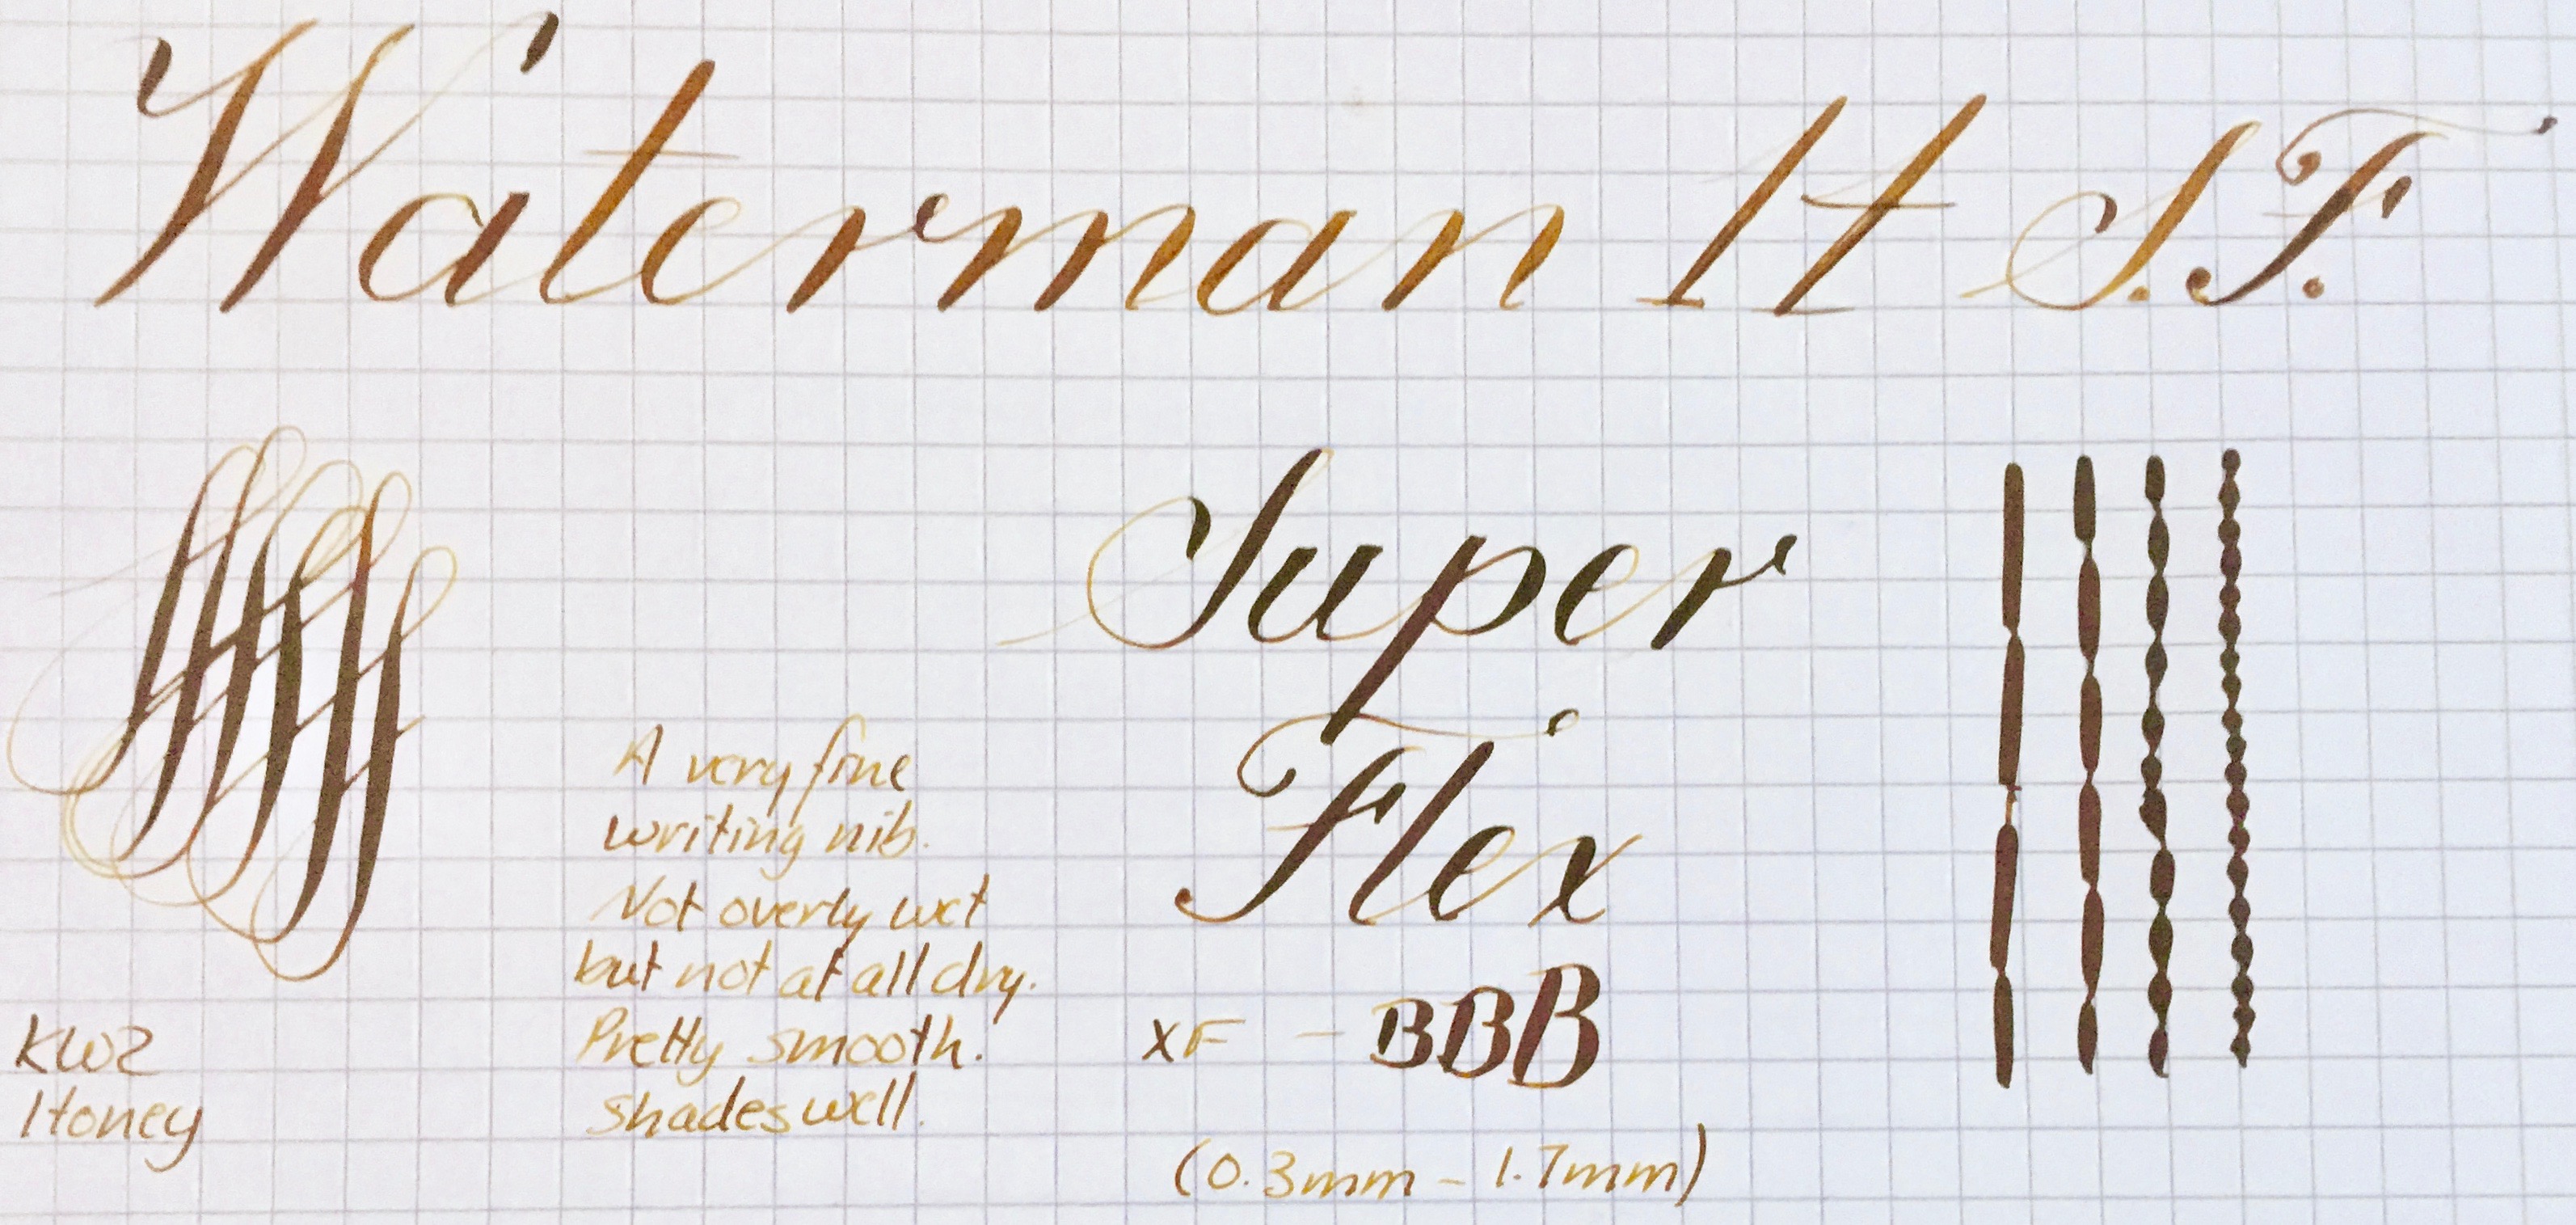 Waterman 1t S.F.
Super
Flex
XF - BBB
(0.3mm - 1.7mm)
A very fine
writing nib.
Not overly wet
but not at all dry.
Pretty smooth.
Shades well.
KWZ
Honey